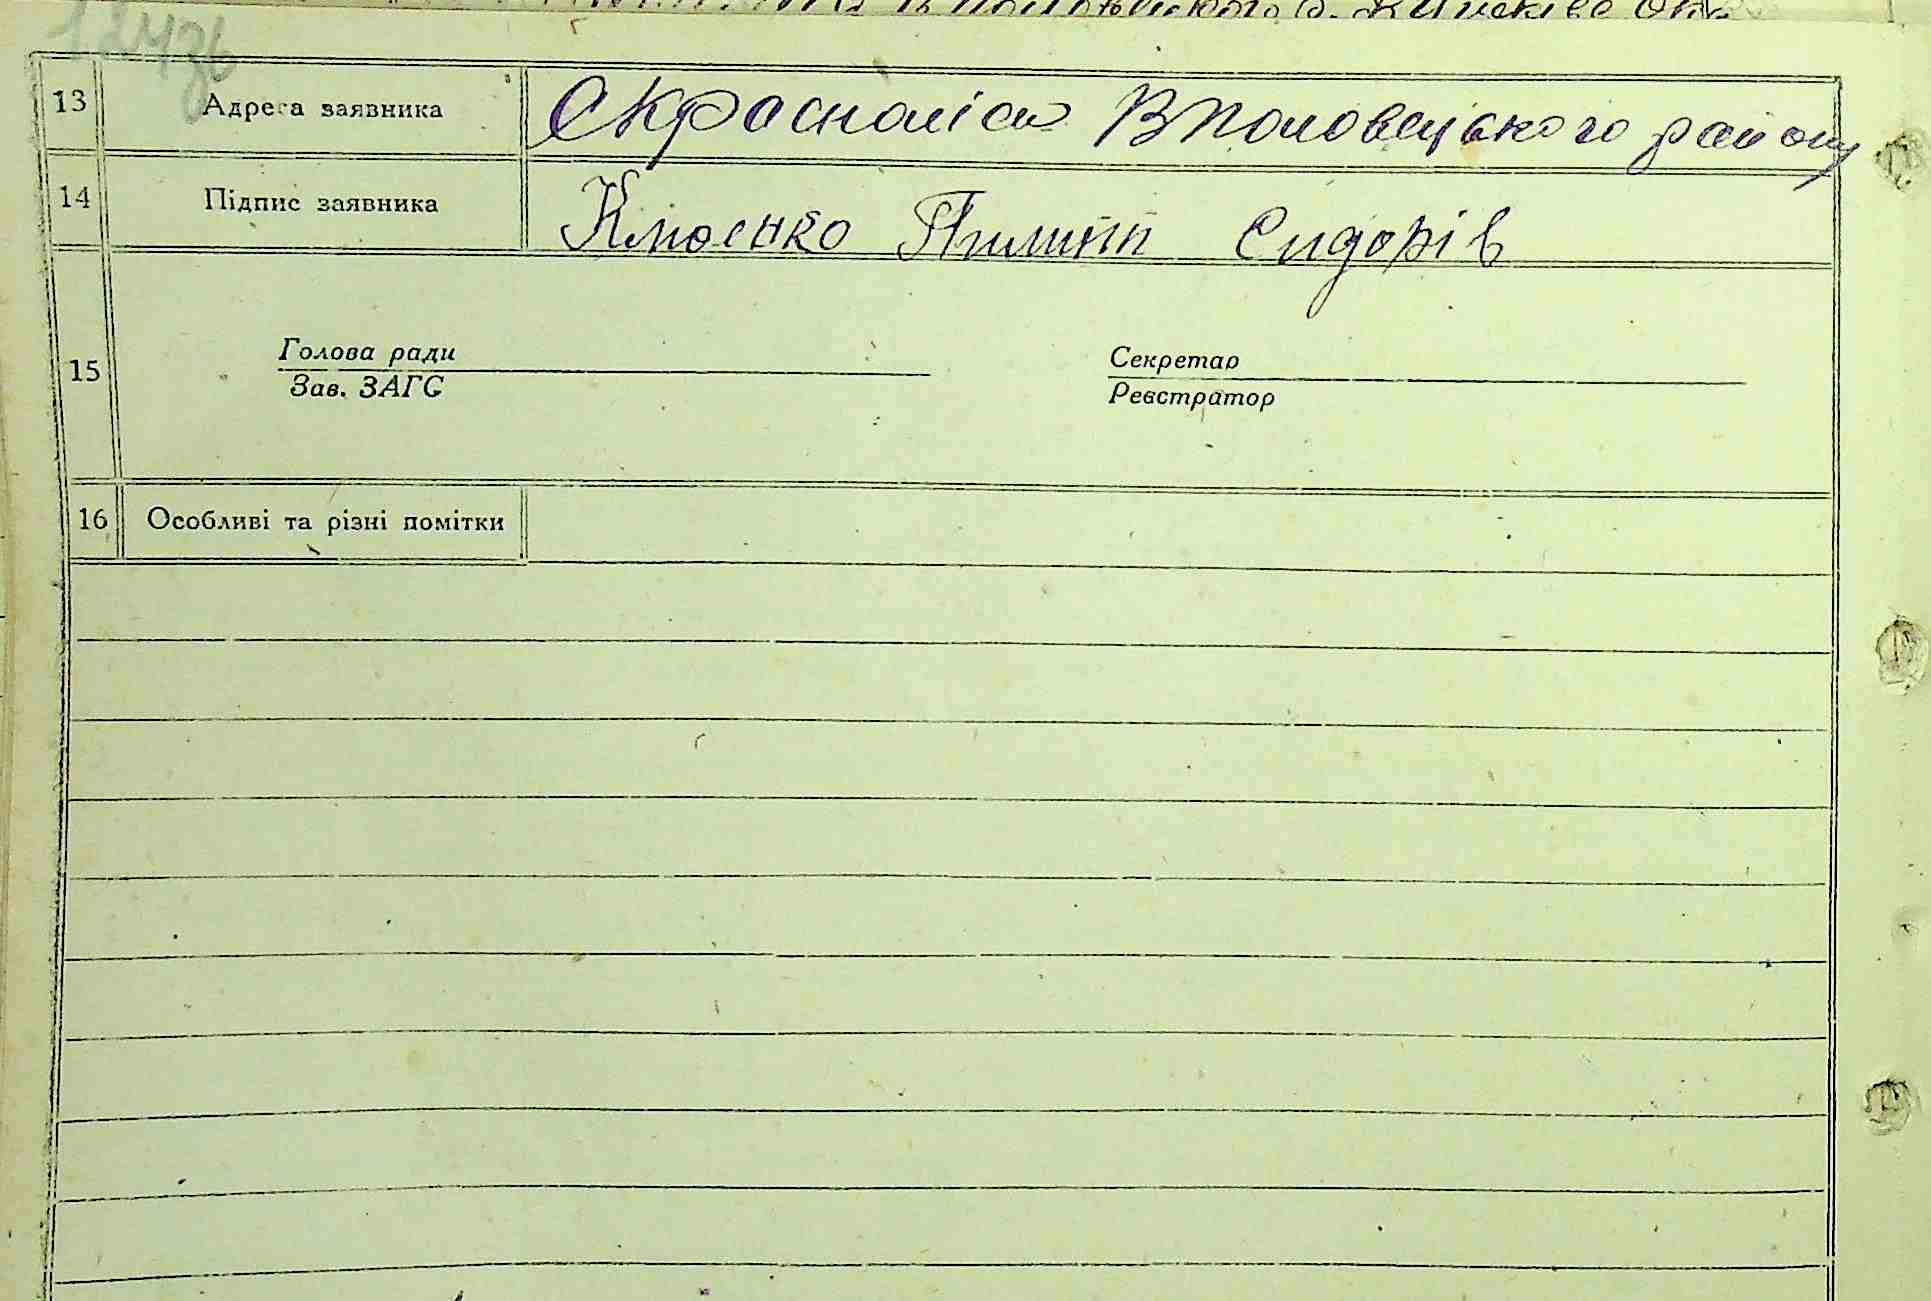 13 Адреса заявника С Красноліси В половецького району
14 Підпис заявника Кмоенко Пилип Сидорів
15 Голова ради
Зав. ЗАГС
Секретар
Реєстратор
16 Особливі та різні помітки